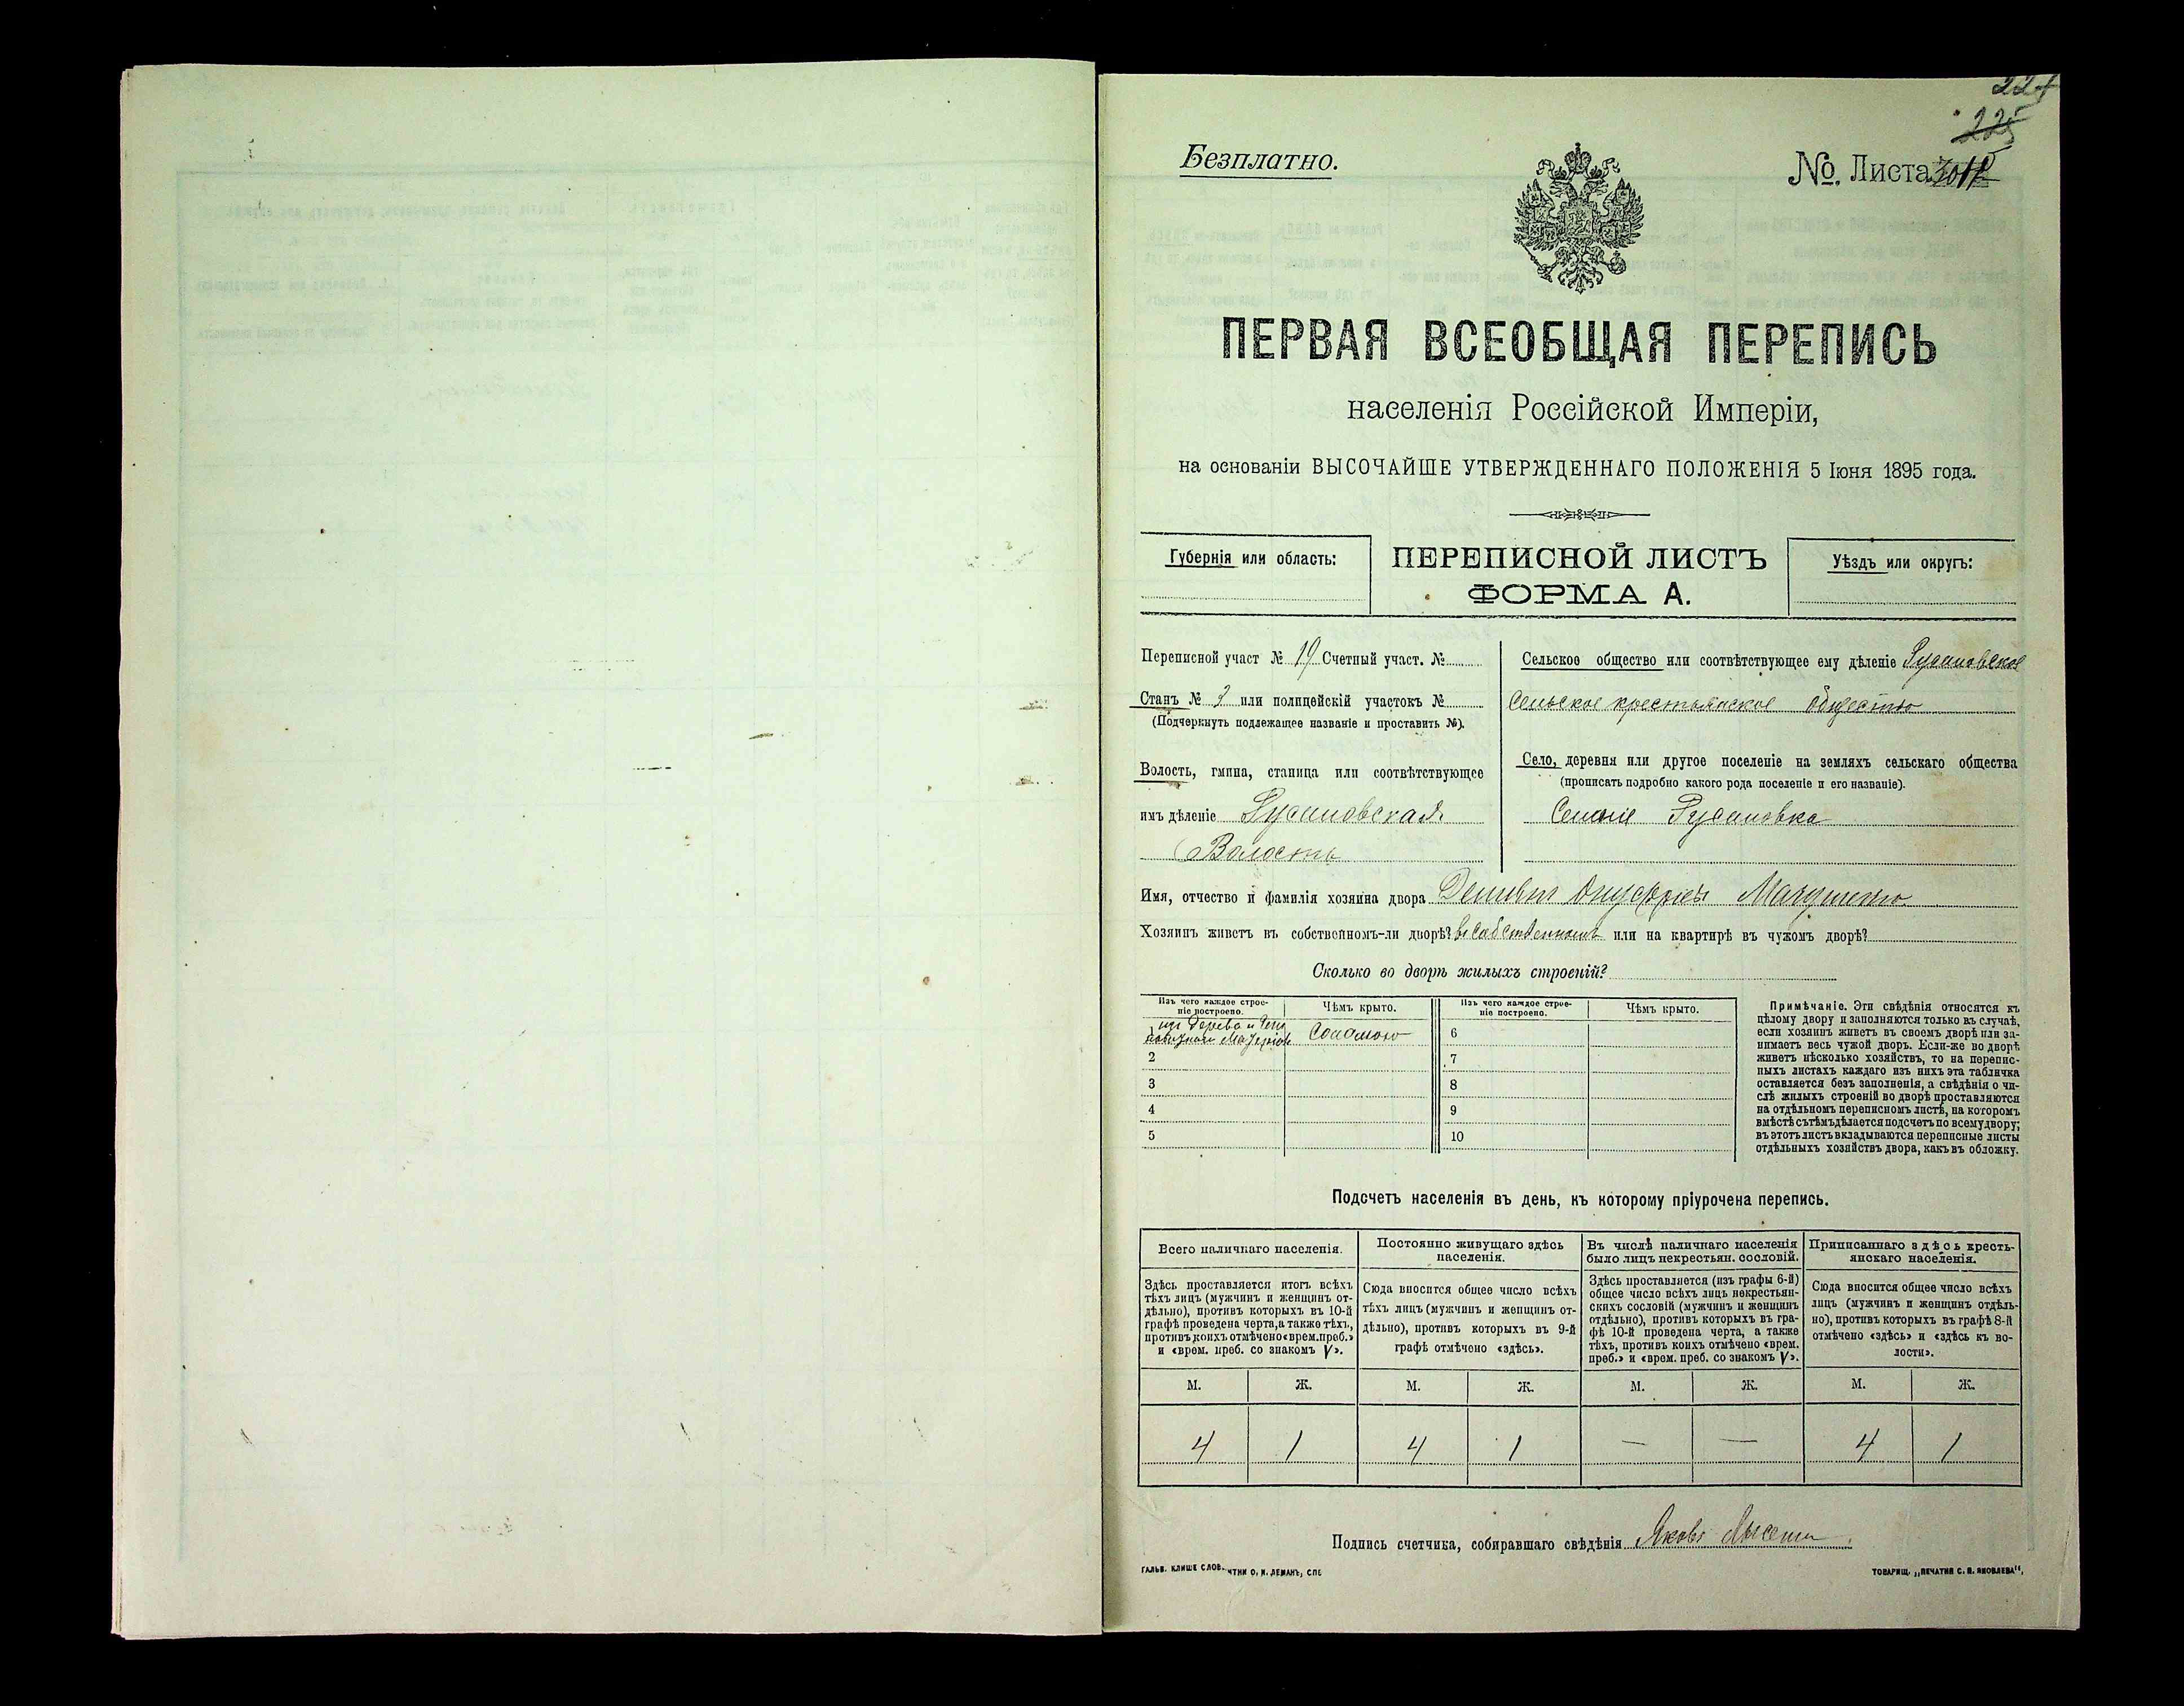 225
Безплатно.
№ Листа
ПЕРВАЯ ВСЕОБЩАЯ ПЕРЕПИСЬ
населенія Россійской Имперіи,
на основаніи ВЫСОЧАЙШЕ УТВЕРЖДЕННАГО ПОЛОЖЕНІЯ 5 Іюня 1895 года.
Губернія или область:
ПЕРЕПИСНОЙ ЛИСТЪ
ФОРМА А.
Уѣздъ или округъ:
Переписной участ № 19 Счетный участ. №
Станъ № 3 или полицейскій участокъ №
(Подчеркнуть подлежащее названіе и проставить №).
Волость, гмина, станица или соотвѣтствующее
имъ дѣленіе Русановская
Волость
Сельское общество или соотвѣтствующее ему дѣленіе Русановское
Сельское крестьянское общество
Село, деревня или другое поселеніе на земляхъ сельскаго общества
(прописать подробно какого рода поселеніе и его названіе).
Русановка
Имя, отчество и фамилія хозяина двора
Хозяинъ живетъ въ собственномъ-ли дворѣ? въ собственномъ или на квартирѣ въ чужомъ дворѣ?
Сколько во дворѣ жилыхъ строеній?
Изъ чего каждое строе-
ніе построено.
Чѣмъ крыто.
Изъ чего каждое строе-
ніе построено.
Чѣмъ крыто.
изъ дерева и
Соломою
6
2
7
3
8
4
9
5
10
Примѣчаніе. Эти свѣдѣнія относятся къ
цѣлому двору и заполняются только въ случаѣ,
если хозяинъ живетъ въ своемъ дворѣ или за-
нимаетъ весь чужой дворъ. Если-же во дворѣ
живетъ нѣсколько хозяйствъ, то на перепис-
ныхъ листахъ каждаго изъ нихъ эта табличка
оставляется безъ заполненія, а свѣдѣнія о чи-
слѣ жилыхъ строеній во дворѣ проставляются
на отдѣльномъ переписномъ листѣ, на которомъ
вмѣстѣ съ тѣмъ дѣлается подсчетъ по всему двору;
въ этотъ листъ вкладываются переписные листы
отдѣльныхъ хозяйствъ двора, какъ въ обложку.
Подсчетъ населенія въ день, къ которому пріурочена перепись.
Всего наличнаго населенія.
Здѣсь проставляется итогъ всѣхъ
тѣхъ лицъ (мужчинъ и женщинъ от-
дѣльно), противъ которыхъ въ 10-й
графѣ проведена черта, а также тѣхъ,
противъ коихъ отмѣчено «врем. преб.»
и «врем. преб. со знакомъ V».
Постоянно живущаго здѣсь
населенія.
Сюда вносится общее число всѣхъ
тѣхъ лицъ (мужчинъ и женщинъ от-
дѣльно), противъ которыхъ въ 9-й
графѣ отмѣчено «здѣсь».
Въ числѣ наличнаго населенія
было лицъ некрестьян. сословій.
Здѣсь проставляется (изъ графы 6-й)
общее число всѣхъ лицъ некрестьян-
скихъ сословій (мужчинъ и женщинъ
отдѣльно), противъ которыхъ въ гра-
фѣ 10-й проведена черта, а также
тѣхъ, противъ коихъ отмѣчено «врем.
преб.» и «врем. преб. со знакомъ V».
Приписаннаго здѣсь кресть-
янскаго населенія.
Сюда вносится общее число всѣхъ
лицъ (мужчинъ и женщинъ отдѣль-
но), противъ которыхъ въ графѣ 8-й
отмѣчено «здѣсь» и «здѣсь къ во-
лости».
М. Ж. М. Ж. М. Ж. М. Ж.
4 1 4 1 — — 4 1
Подпись счетчика, собиравшаго свѣдѣнія Яковъ
ГАЛЬВ. КЛИШЕ СЛОВ. ЧТНИ О. И. ЛЕМАНЪ, СПБ
ТОВАРИЩ. „ПЕЧАТНЯ С. П. ЯКОВЛЕВА",